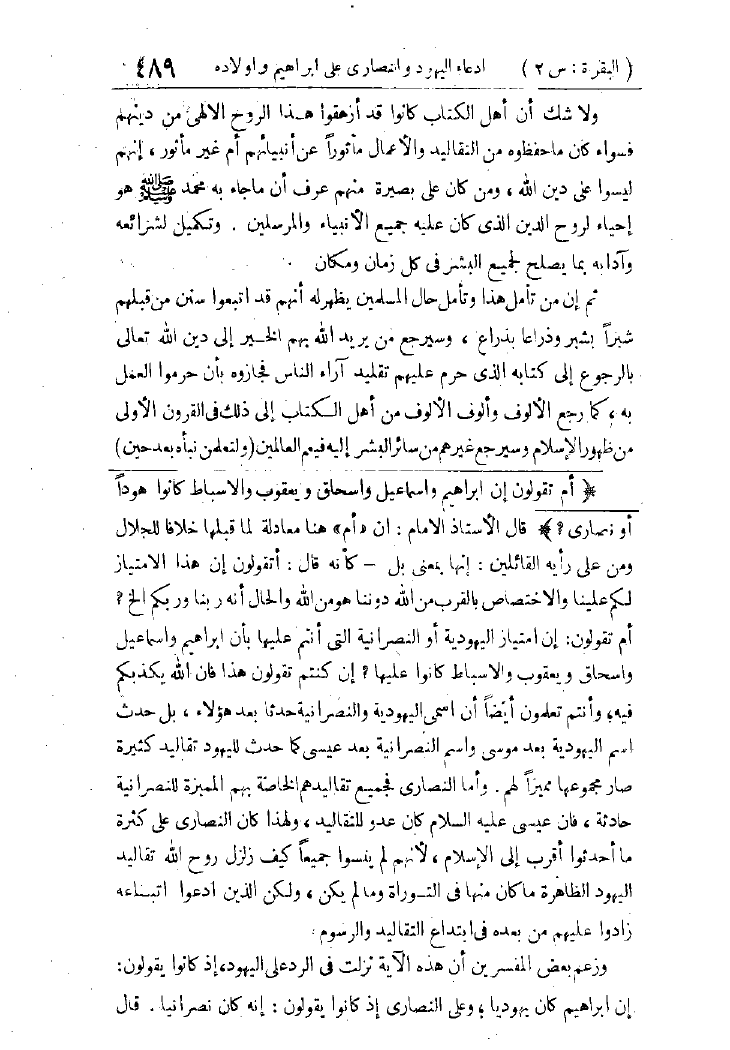 ( البقرة : س ٢ ) ادعاء اليهود والنصارى على ابراهيم واولاده ٤٨٩
ولا شك أن أهل الكتاب كانوا قد أزهقوا هذا الروح الالهىّ من دينهم
فسواء كان ماحفظوه من التقاليد والأعمال مأثوراً عن أنبيائهم أم غير مأثور ، إنهم
ليسوا على دين الله ، ومن كان على بصيرة منهم عرف أن ماجاء به محمد ﷺ هو
إحياء لروح الدين الذى كان عليه جميع الأنبياء والمرسلين . وتكميل لشرائعه
وآدابه بما يصلح لجميع البشر فى كل زمان ومكان
ثم إن من تأمل هذا وتأمل حال المسلمين يظهر له أنهم قد اتبعوا سنن من قبلهم
شبراً بشبر وذراعا بذراع ، وسيرجع من يريد الله بهم الخير إلى دين الله تعالى
بالرجوع إلى كتابه الذى حرم عليهم تقليد آراء الناس فجازوه بأن حرموا العمل
به ، كما رجع الألوف وألوف الألوف من أهل الكتاب إلى ذلك فى القرون الأولى
من ظهور الإسلام وسيرجع غيرهم من سائر البشر إليه فيعم العالمين (ولتعلمن نبأه بعد حين)
﴿ أم تقولون إن ابراهيم واسماعيل واسحاق ويعقوب والاسباط كانوا هوداً
أو نصارى ? ﴾ قال الأستاذ الامام : ان «أم» هنا معادلة لما قبلها خلافا للجلال
ومن على رأيه القائلين : إنها بمعنى بل – كأنه قال : أتقولون إن هذا الامتياز
لكم علينا والاختصاص بالقرب من الله دوننا هو من الله والحال أنه ربنا وربكم الخ ?
أم تقولون: إن امتياز اليهودية أو النصرانية التى أنتم عليها بأن ابراهيم واسماعيل
واسحاق ويعقوب والاسباط كانوا عليها ? إن كنتم تقولون هذا فان الله يكذبكم
فيه، وأنتم تعلمون أيضاً أن اسمى اليهودية والنصرانية حدثا بعد هؤلاء ، بل حدث
اسم اليهودية بعد موسى واسم النصرانية بعد عيسى كما حدث لليهود تقاليد كثيرة
صار مجموعها مميزاً لهم . وأما النصارى فجميع تقاليدهم الخاصة بهم المميزة للنصرانية
حادثة ، فان عيسى عليه السلام كان عدو للتقاليد ، ولهذا كان النصارى على كثرة
ما أحدثوا أقرب إلى الإسلام ، لأنهم لم ينسوا جميعاً كيف زلزل روح الله تقاليد
اليهود الظاهرة ماكان منها فى التوراة وما لم يكن ، ولكن الذين ادعوا اتباعه
زادوا عليهم من بعده فى ابتداع التقاليد والرسوم .
وزعم بعض المفسرين أن هذه الآية نزلت فى الرد على اليهود، إذ كانوا يقولون:
إن ابراهيم كان يهوديا ؛ وعلى النصارى إذ كانوا يقولون : إنه كان نصرانيا . قال